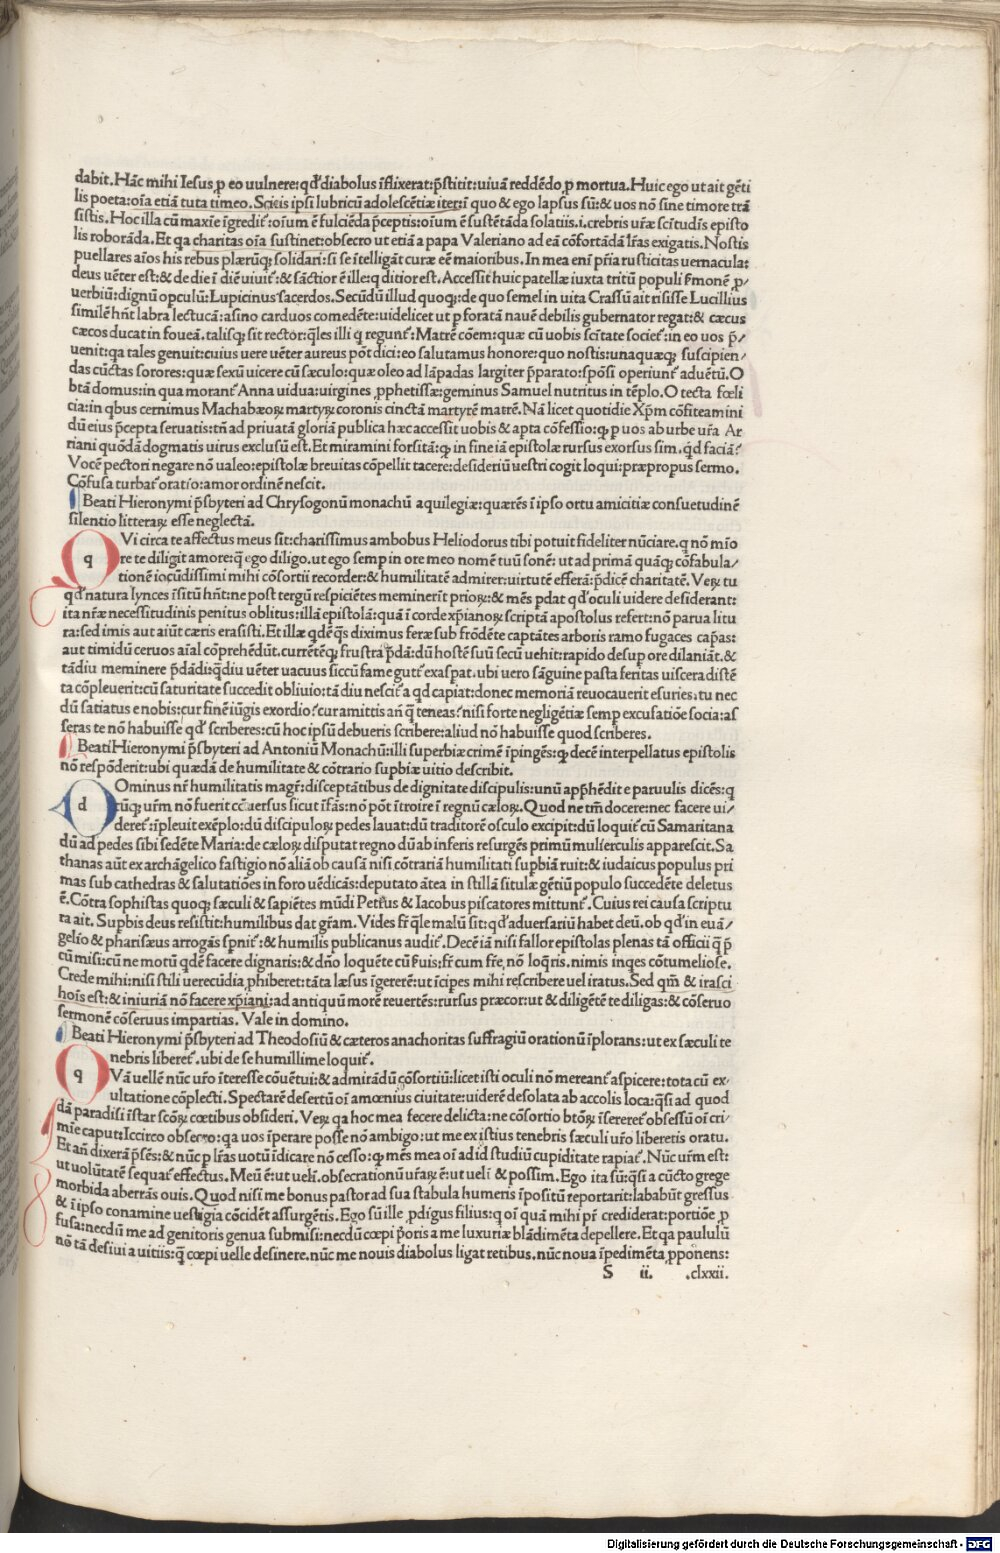 dabit. Hāc mihi Iesus ꝓ eo uulnere: qđ diabolus īflixerat: p̄stitit: uiuā reddēdo ꝓ mortua. Huic ego ut ait gēti
lis poeta: oīa etiā tuta timeo. Scieis ipsi lubricū adolescētiæ iter: ī quo & ego lapsus sū: & uos nō sine timore trā
sistis. Hoc illa cū maxīe īgredit᷑: oīum ē fulciēda p̄ceptis: oīum ē sustētāda solatiis. i. crebris ur̄æ scītudīs episto
lis roborāda. Et qa charitas oīa sustinet: obsecro ut etiā a papa Valeriano ad eā cōfortādā lr̄as exigatis. Nostis
puellares aīos his rebus plærūq; solidari: si se ītelligāt curæ eē maioribus. In mea enī pr̄ia rusticitas uernacula:
deus uēter est: & de die ī diē uiuit᷑: & sāctior ē ille: q ditior est. Accessit huic patellæ iuxta tritū populi sermonē ꝓ/
uerbiū: dignū opculū: Lupicinus sacerdos. Secūdū illud quoq;: de quo semel in uita Crassū ait risisse Lucillius
similē hn̄t labra lectucā: asino carduos comedēte: uidelicet ut ꝑforatā nauē debilis gubernator regat: & cæcus
cæcos ducat in foueā. talisq; sit rector: q̄les illi q regunt᷑. Matrē cōem: quæ cū uobis scītate societ᷑: in eo uos p̄/
uenit: qa tales genuit: cuius uere uēter aureus pōt dici: eo salutamus honore: quo nostis: unaquæq; suscipien/
das cūctas sorores: quæ sexū uicere cū sæculo: quæ oleo ad lāpadas largiter p̄parato: spōsi operiunt᷑ aduētū. O
btā domus: in qua morant᷑ Anna uidua: uirgines ꝓphetissæ: geminus Samuel nutritus in tēplo. O tecta fœli
cia: in qbus cernimus Machabæoꝝ martyꝝ coronis cinctā martyrē matrē. Nā licet quotidie Xp̄m cōfiteamini
dū eius p̄cepta seruatis: tn̄ ad priuatā gloriā publica hæc accessit uobis & apta cōfessio: q; p uos ab urbe ur̄a Ar
riani quōdā dogmatis uirus exclusū est. Et miramini forsitā: q; in fine iā epistolæ rursus exorsus sim. qd faciā?
Vocē pectori negare nō ualeo: epistolæ breuitas cōpellit tacere: desideriū uestri cogit loqui: præpropus sermo.
Cōfusa turbat᷑ oratio: amor ordinē nescit.
Beati Hieronymi p̄sbyteri ad Chrysogonū monachū aquilegiæ: quærēs ī ipso ortu amicitiæ consuetudinē
silentio litteraꝝ esse neglectā.
q Vi circa te affectus meus sit: charissimus ambobus Heliodorus tibi potuit fideliter nūciare. q nō mīo
re te diligit amore: q̄ ego diligo. ut ego semp in ore meo nomē tuū sonē: ut ad primā quāq; cōfabula/
tionē iocūdissimi mihi cōsortii recorder: & humilitatē admirer: uirtutē efferā: p̄dicē charitatē. Veꝝ tu
qđ natura lynces īsitū hn̄t: ne post tergū respiciētes meminerīt prioꝝ: & mēs pdat qđ oculi uidere desiderant:
ita nr̄æ necessitudinis penitus oblitus: illā epistolā: quā ī corde xp̄ianoꝝ scriptā apostolus refert: nō parua litu
ra: sed imis aut aiūt cæris erasisti. Et illæ qdē q̄s diximus feræ sub frōdēte captātes arboris ramo fugaces cap̄as:
aut timidū ceruos aīal cōprehēdūt. currētēq; frustra p̄dā: dū hostē suū secū uehit: rapido desup ore dilaniāt. &
tādiu meminere p̄dādi: q̄diu uēter uacuus siccū fame gutt᷑ exaspat. ubi uero sāguine pasta feritas uiscera distē
ta cōpleuerit: cū saturitate succedit obliuio: tā diu nescit᷑ a qd capiat: donec memoriā reuocauerit esuries. tu nec
dū satiatus e nobis: cur finē iūgis exordio? cur amittis an̄ q̄ teneas? nisi forte negligētiæ semp excusatiōe socia: as
seras te nō habuisse qđ scriberes: cū hoc ipsū debueris scribere: aliud nō habuisse quod scriberes.
Beati Hieronymi p̄sbyteri ad Antoniū Monachū: illi superbiæ crimē īpingēs: q; decē interpellatus epistolis
nō respōderit: ubi quædā de humilitate & cōtrario supbiæ uitio describit.
d Ominus nr̄ humilitatis magr̄: disceptātibus de dignitate discipulis: unū app̄hēdit e paruulis dicēs: q
cūq; ur̄m nō fuerit cōuersus sicut īfās: nō pōt ītroire ī regnū cæloꝝ. Quod ne tm̄ docere: nec facere ui/
deret᷑: īpleuit exēplo: dū discipuloꝝ pedes lauat: dū traditorē osculo excipit: dū loquit᷑ cū Samaritana
dū ad pedes sibi sedēte Maria: de cæloꝝ disputat regno dū ab inferis resurgēs primū mulierculis apparescit. Sa
thanas aūt ex archāgelico fastigio nō aliā ob causā nisi cōtrariā humilitati supbiā ruit: & iudaicus populus pri
mas sub cathedras & salutatiōes in foro uēdicās: deputato ātea in stillā situlæ gētiū populo succedēte deletus
ē. Cōtra sophistas quoq; sæculi & sapiētes mūdi Petrus & Iacobus piscatores mittunt᷑. Cuius rei causa scriptu
ra ait. Supbis deus resistit: humilibus dat gr̄am. Vides fr̄ q̄le malū sit: qđ aduersariū habet deū. ob qđ in euā/
gelio & pharisæus arrogās spnit᷑: & humilis publicanus audit᷑. Decē iā nisi fallor epistolas plenas tā officii q̄ p̄
cū misi: cū ne motū qdē facere dignaris: & dn̄o loquēte cū suis: fr̄ cum fr̄e nō loqris. nimis inqes cōtumeliose.
Crede mihi: nisi stili uerecūdia phiberet: tāta læsus īgererē: ut īcipes mihi rescribere uel iratus. Sed qm̄ & irasci
hoīs est: & iniuriā nō facere xp̄iani: ad antiquū morē reuertēs: rursus præcor: ut & diligētē te diligas: & cōseruo
sermonē cōseruus impartias. Vale in domino.
Beati Hieronymi p̄sbyteri ad Theodosiū & cæteros anachoritas suffragiū orationū īplorans: ut ex sæculi te
nebris liberet᷑. ubi de se humillime loquit᷑.
q Vā uellē nūc ur̄o īteresse cōuētui: & admirādū cōsortiū: licet isti oculi nō mereant᷑ aspicere: tota cū ex/
ultatione cōplecti. Spectarē desertū oī amœnius ciuitate: uiderē desolata ab accolis loca: q̄si ad quod
dā paradisi īstar scōꝝ cœtibus obsideri. Veꝝ qa hoc mea fecere delicta: ne cōsortio btōꝝ īsereret᷑ obsessū oī cri/
mīe caput: Iccirco obsecro: qa uos īperare posse nō ambigo: ut me ex istius tenebris sæculi ur̄o liberetis oratu.
Et an̄ dixerā p̄sēs: & nūc p lr̄as uotū īdicare nō cesso: q; mēs mea oī ad id studiū cupiditate rapiat᷑. Nūc ur̄m est:
ut uolūtatē sequat᷑ effectus. Meū ē: ut ueli. obsecrationū ur̄aꝝ ē: ut ueli & possim. Ego ita sū: q̄si a cūcto grege
morbida aberrās ouis. Quod nisi me bonus pastor ad sua stabula humeris īpositū reportarit: lababūt gressus
& ī ipso conamine uestigia cōcidēt assurgētis. Ego sū ille ꝓdigus filius: q oī quā mihi pr̄ crediderat: portiōe ꝓ
fusa: necdū me ad genitoris genua submisi: necdū cœpi p̄oris a me luxuriæ blādimēta depellere. Et qa paululū
nō tā desiui a uitiis: q̄ cœpi uelle desinere. nūc me nouis diabolus ligat retibus. nūc noua īpedimēta ꝓponens:
S ii. .clxxii.
Digitalisierung gefördert durch die Deutsche Forschungsgemeinschaft - DFG